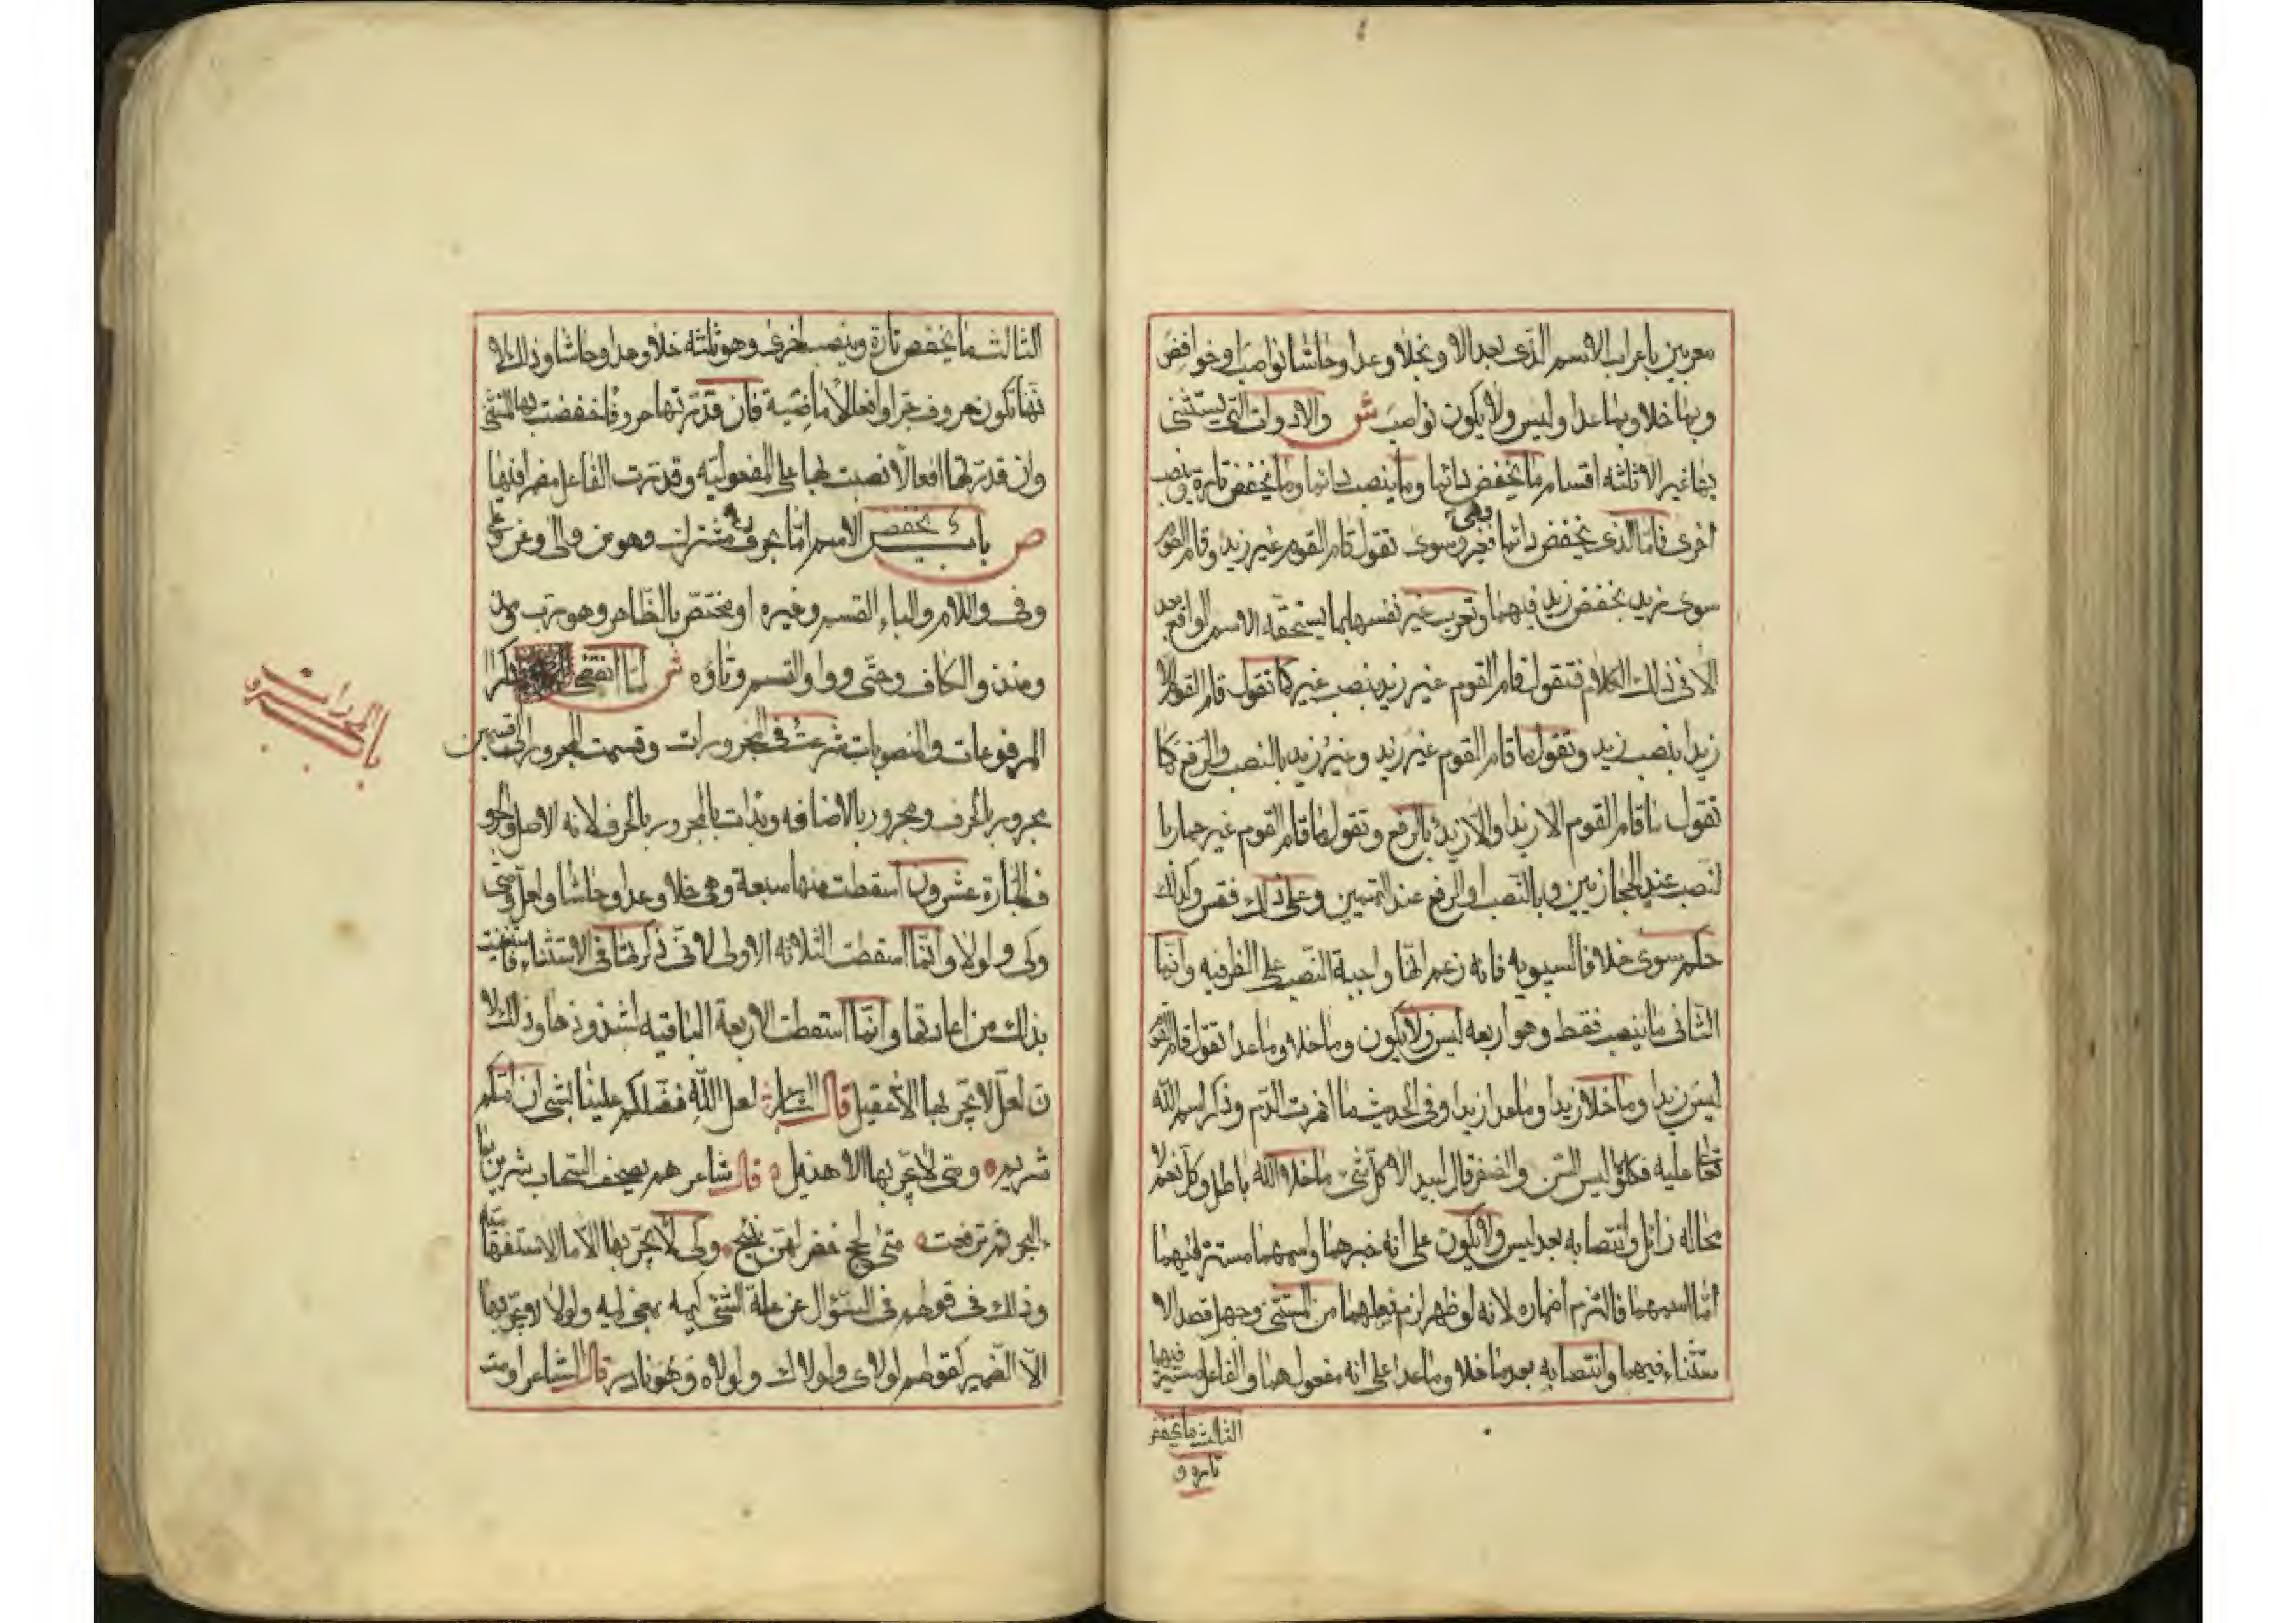 معربين باعراب الاسم الذى بعد الا وبخلا وعدا وحاشا نواصب او خوافض
وبما خلا وبما عدا وليس ولا يكون نواصب ش والادوات التى يستثنى
بها غير الا ثلثه اقسام ما يخفض دائما وما ينصب دائما وما يخفض تارة وينصب
اخرى فاما الذى يخفض دائما فغير وسوى تقول قام القوم غير زيد وقام القوم
سوى زيد بخفض زيد فيهما وتعرب غير نفسها بما يستحقه الاسم الواقع بعد
الا فى ذلك الكلام فتقول قام القوم غير زيد بنصب غير كما تقول قام القوم الا
زيدا بنصب زيد وتقول ما قام القوم غير زيد وغير زيد بالنصب والرفع كما
تقول ما قام القوم الا زيدا والا زيد بالرفع وتقول ما قام القوم غير حمار با
لنصب عند الحجازيين وبالنصب او الرفع عند التميمين وعلى ذلك فقس وكذلك
حكم سوى خلافا لسيبويه فانه زعم انها واجبة النصب على الظرفيه وانما
الثانى ما ينصب فقط وهو اربعه ليس ولا يكون وما خلا وما عدا تقول قام القوم
ليس زيدا وما خلا زيدا وما عدا زيدا وفى الحديث ما انهرت الدم وذكر اسم الله
تعا عليه فكلوا ليس السن والضفر قال لبيد الا كل شى ما خلا الله باطل وكل نعيم لا
محاله زائل وانتصابه بعد ليس ولا يكون على انه خبرهما واسمهما مستتر فيهما
اما اسمهما فالتزم اضماره لانه لو ظهر لزم فصلهما من المستثنى وجهل قصد الا
ستثناء فيهما وانتصابه بعد ما خلا وما عدا على انه مفعول هما والفاعل مستتر فيهما
الثالث ما يخفض
تارة و
الثالث ما يخفض تارة وينصب اخرى وهو ثلثه خلا وعدا وحاشا وذلك لا
نها تكون حروف جر وافعالا ماضية فان قدرتها حروفا خفضت بها المستثنى
وان قدرتها افعالا نصبت بها على المفعوليه وقدرت الفاعل مضمرا فيها
ص باب يخفض الاسم اما بحرف مشترك وهو من والى وعن وعلى
وفى واللام والباء القسم وغيره او مختص بالظاهر وهو رب ومذ
ومنذ والكاف وحتى وواو القسم وتاؤه ش لما انقضى ذكر ا
لمرفوعات والمنصوبات شرعت فى المجرورات وقسمت المجرور الى قسمين
مجرور بالحرف ومجرور بالاضافه وبدات بالمجرور بالحرف لانه الاصل والحرو
ف الجارة عشرون اسقطت منها سبعة وهى خلا وعدا وحاشا ولعل ومتى
وكى ولولا وانما اسقطت الثلاثه الاولى لانى ذكرتها فى الاستثناء فاستغنيت
بذلك من اعادتها وانما اسقطت الاربعة الباقيه لشذوذها وذلك لا
ن لعل لا يجر بها الا عقيل قال الشاعر لعل الله فضلكم علينا بشى ان امكم
شريم ومتى لا يجر بها الا هذيل قال شاعرهم يصف السحاب شربن بما
البحر ثم ترفعت متى لجج خضر لهن نئيج وكى لا يجر بها الا ما الاستفهاميه
وذلك فى قولهم فى السؤال عن علة الشئ كيمه بمعنى لمه ولولا لا يجر بها
الا الضمير كقولهم لولاى ولولاك ولولاه وهو نادر قال الشاعر اومت
باب المجرورات